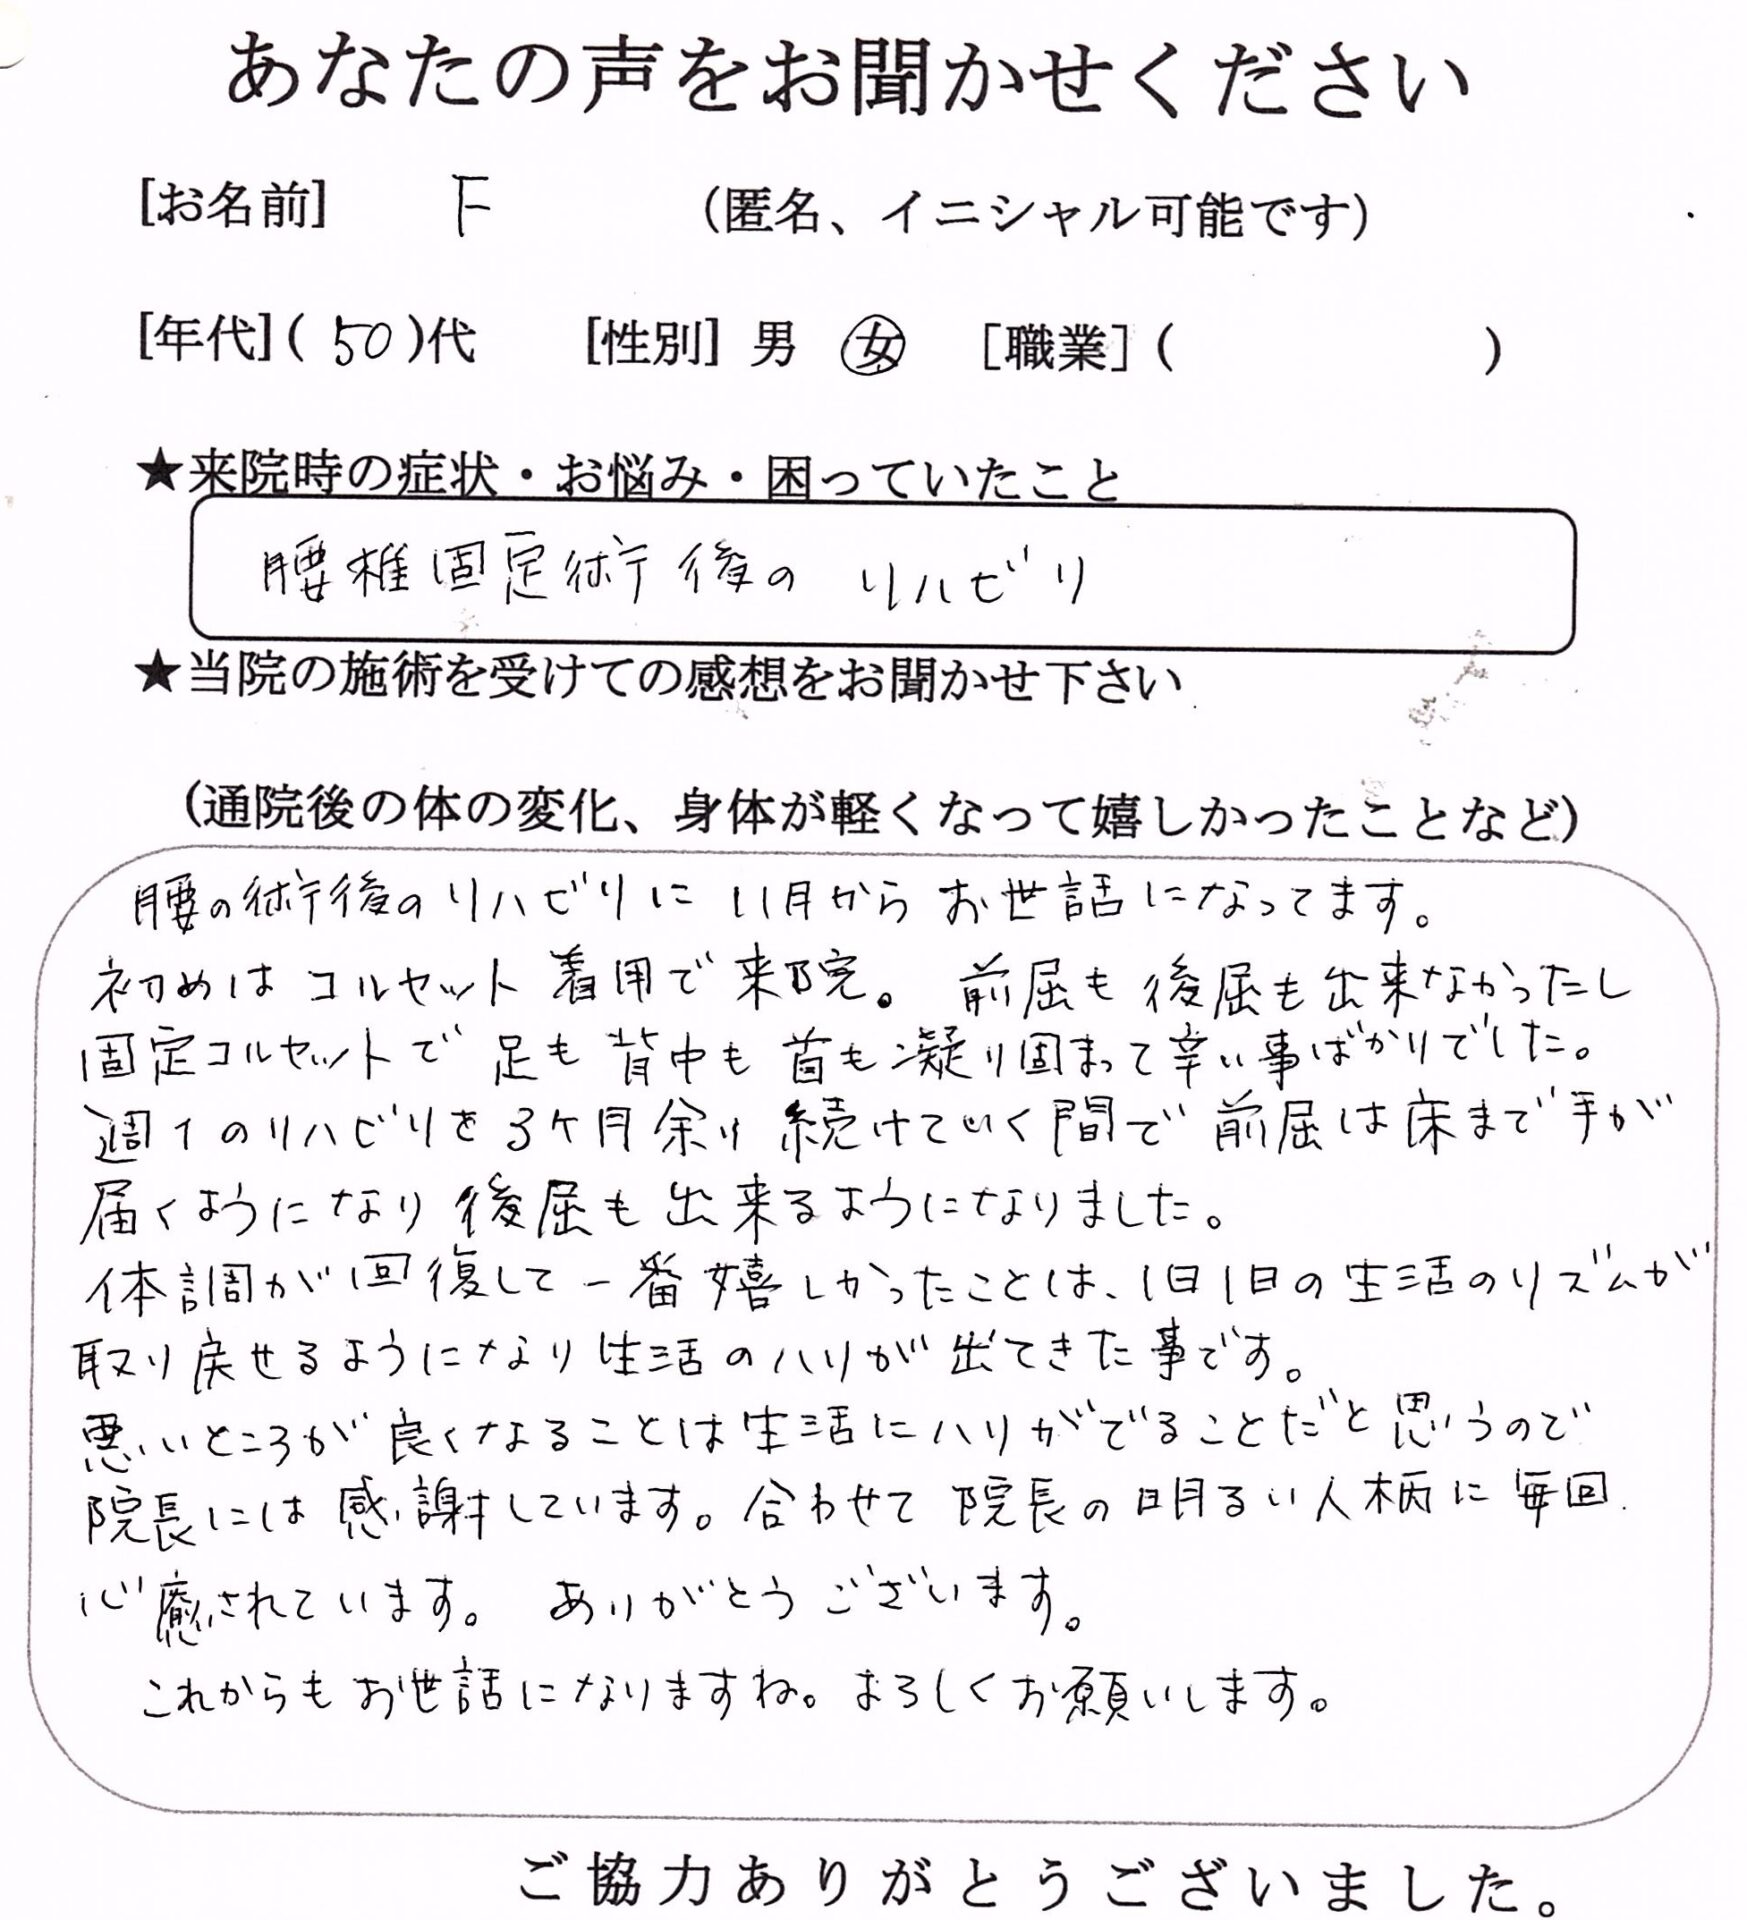 あなたの声をお聞かせください
[お名前] F (匿名、イニシャル可能です)
[年代] ( 50 )代 [性別] 男 女 [職業] ( )
★来院時の症状・お悩み・困っていたこと
腰椎固定術後の リハビリ
★当院の施術を受けての感想をお聞かせ下さい
(通院後の体の変化、身体が軽くなって嬉しかったことなど)
腰の術後のリハビリに 11月から お世話になってます。
初めは コルセット 着用で 来院。 前屈も 後屈も 出来なかったし
固定コルセットで 足も 背中も 首も 凝り固まって 辛い事ばかりでした。
週1のリハビリを 3ケ月余り 続けていく間で 前屈は 床まで 手が
届くようになり 後屈も 出来るようになりました。
体調が回復して 一番嬉しかったことは、1日1日の生活のリズムが
取り戻せるようになり 生活のハリが出てきた事です。
悪いところが 良くなることは 生活にハリがでることだと 思うので
院長には 感謝しています。合わせて 院長の 明るい人柄に 毎回
心癒されています。 ありがとうございます。
これからも お世話になりますね。よろしくお願いします。
ご協力ありがとうございました。